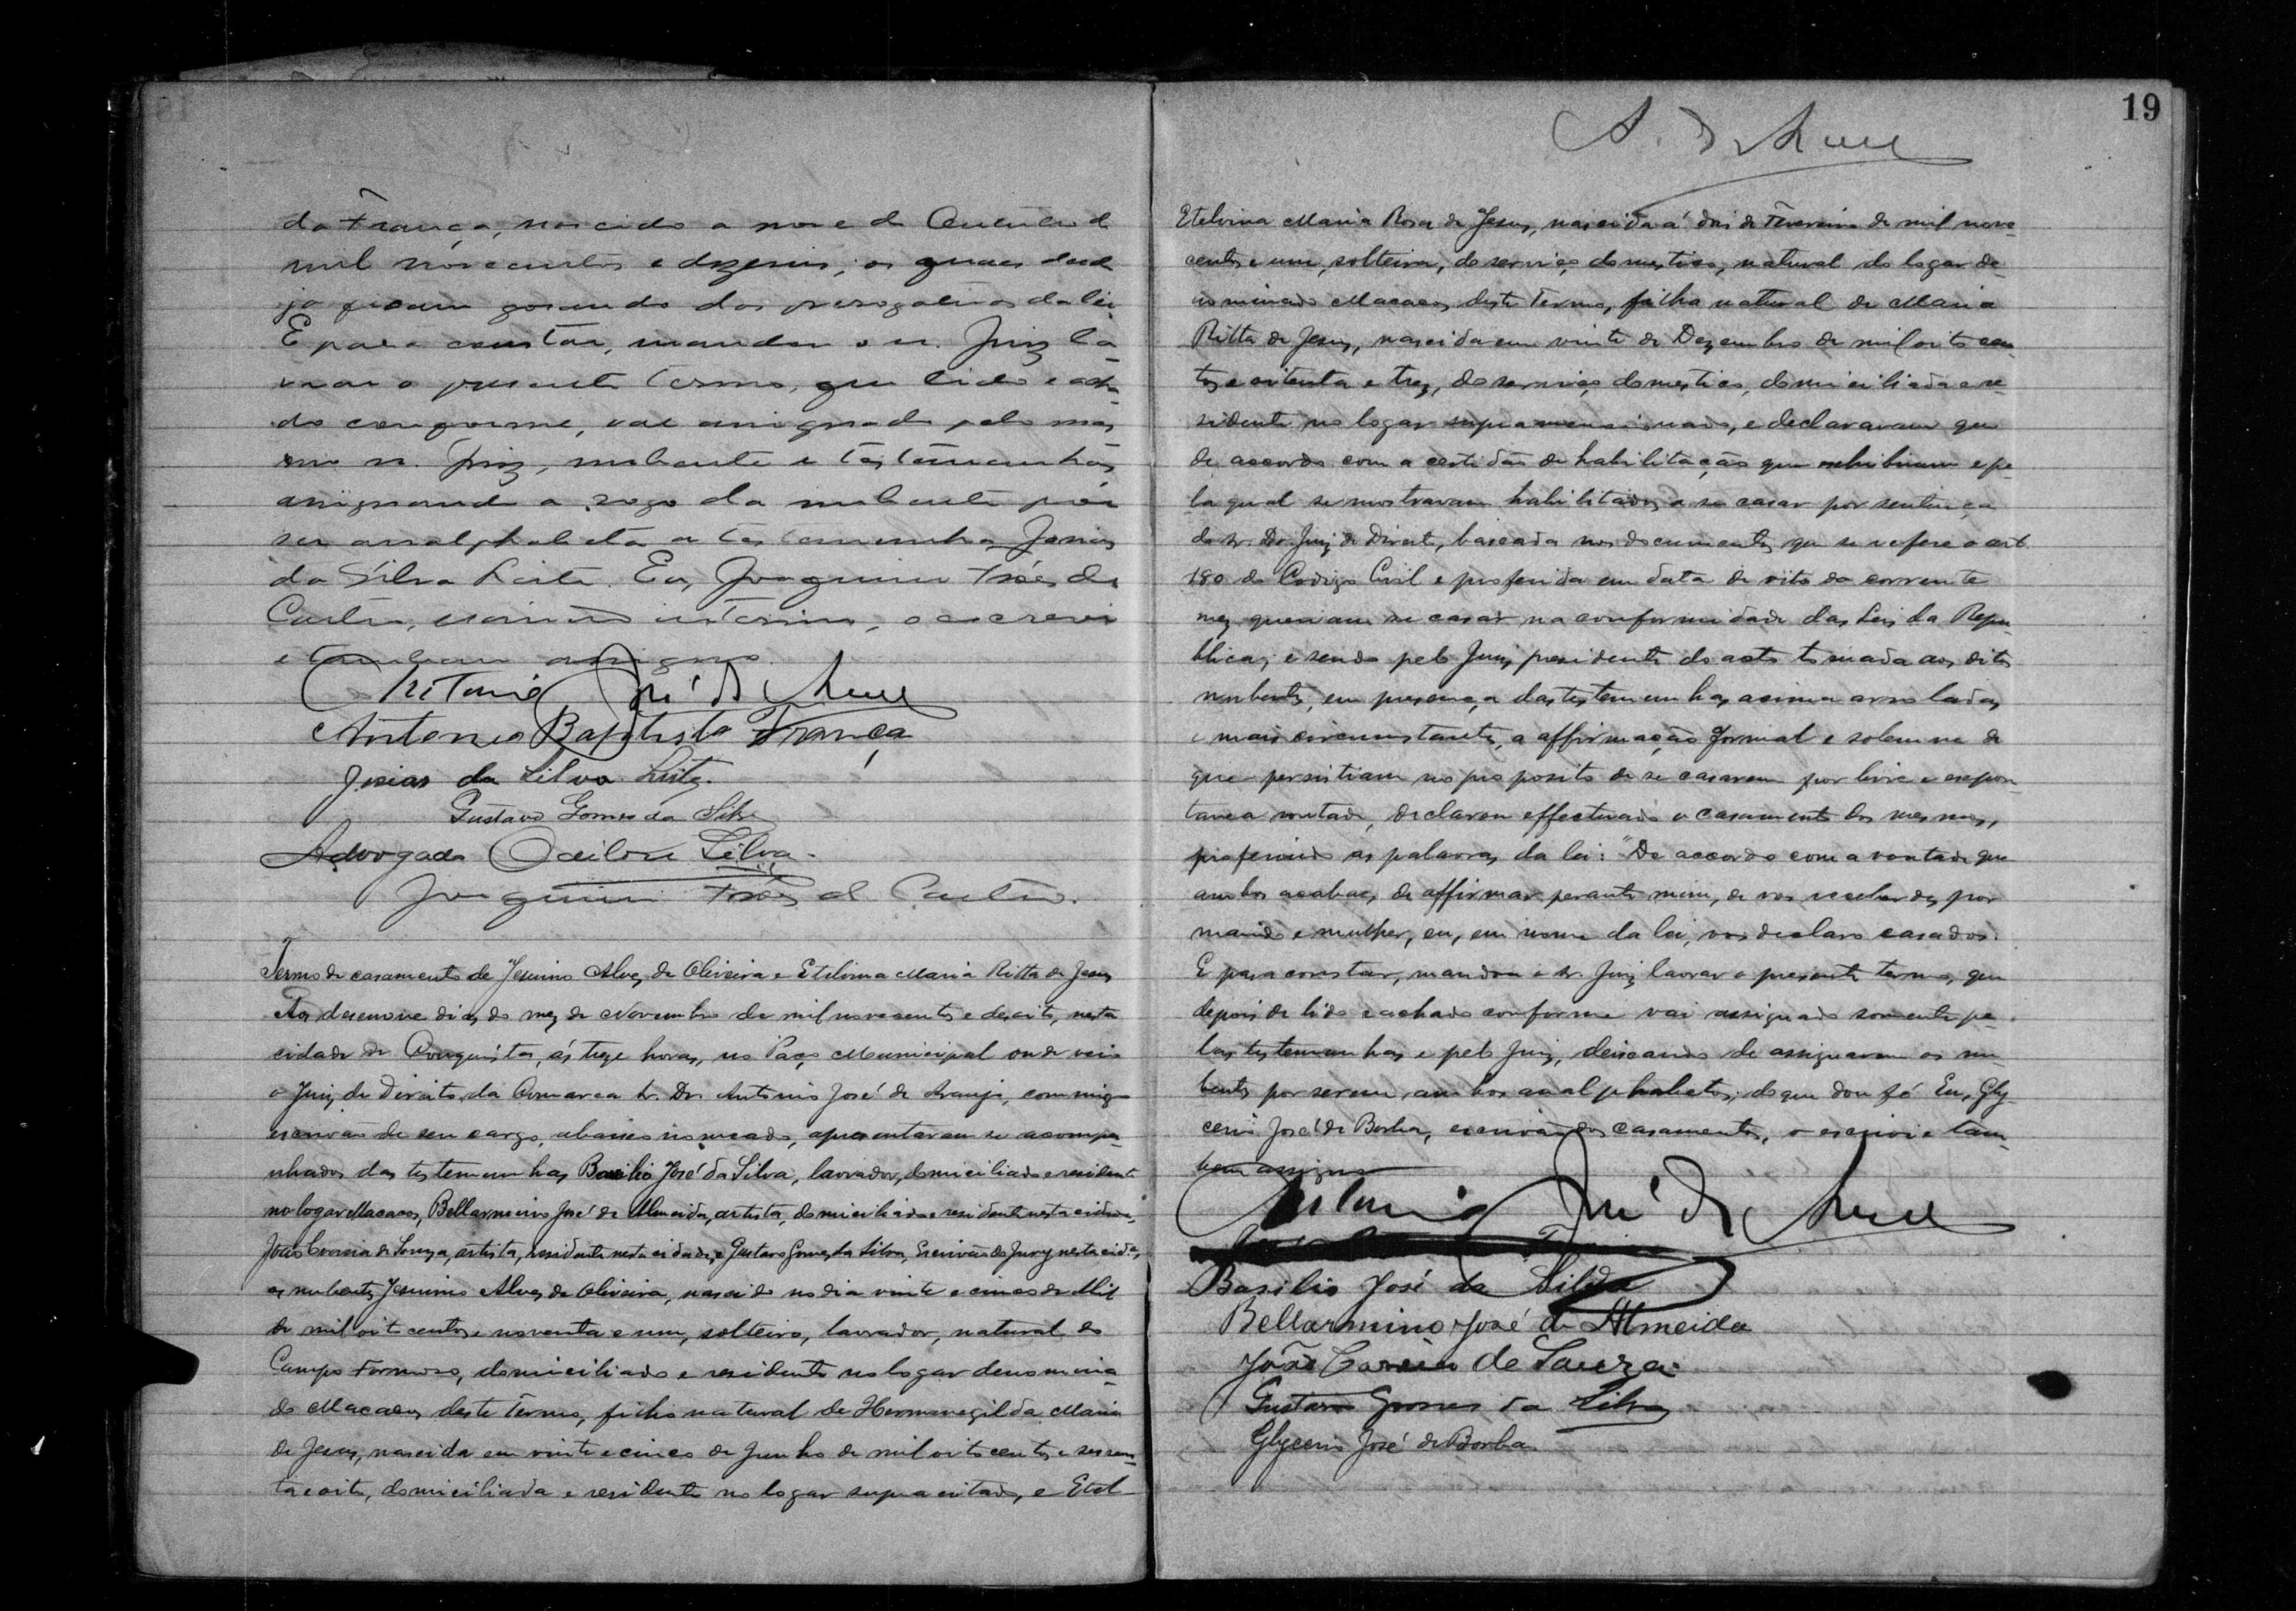 da França, nascido a nove de Outubro de
mil novecentos e dezeseis; os quaes desde
ja ficam gosando das prerogativas da lei.
E para constar, mandou o sr. Juiz la-
vrar o presente termo, que lido e acha-
do conforme, vae assignado pelo mes-
mo sr. Juiz, nubente e testemunhas,
assignando a rogo da nubente por
ser analphabeta a testemunha Josias
da Silva Leite. Eu, Joaquim Fróes de
Castro, escrivão interino, o escrevi
e tambem assigno.
Antonio José de Araujo
Antonio Baptista França
Josias da Silva Leite.
Gustavo Gomes da Silva
Advogado Odilon Silva.
Joaquim Fróes de Castro.
Termo de casamento de Jesuino Alves de Oliveira e Etelvina Maria Ritta de Jesus
Aos desenove dias do mez de Novembro de mil novecentos e desoito, nesta
cidade de Conquista, ás treze horas, no Paço Municipal onde veio
o Juiz de Direito da Comarca Sr. Dr. Antonio José de Araujo, commigo
escrivão de seu cargo, abaixo nomeado, apresentaram-se acompa-
nhados das testemunhas Basilio José da Silva, lavrador, domiciliado e residente
no logar Macacos, Bellarmino José de Almeida, artista, domiciliado e residente nesta cidade,
João Correia de Souza, artista, residente nesta cidade, e Gustavo Gomes da Silva, Escrivão do Jury nesta cidade,
os nubentes Jesuino Alves de Oliveira, nascido no dia vinte e cinco de Abril
de mil oitocentos e noventa e um, solteiro, lavrador, natural do
Campo Formoso, domiciliado e residente no logar denomina-
do Macacos deste termo, filho natural de Hermenegilda Maria
de Jesus, nascida em vinte e cinco de Junho de mil oitocentos e sessen-
ta e oito, domiciliada e residente no logar supra citado, e Etel-
19
A. de Araujo
Etelvina Maria Rosa de Jesus, nascida á dois de Fevereiro de mil nove-
centos e um, solteira, do serviço domestico, natural do logar de-
nominado Macacos deste Termo, filha natural de Maria
Ritta de Jesus, nascida em vinte de Dezembro de mil oito cen-
tos e oitenta e trez, do serviço domestico, domiciliada e re-
sidente no logar supramencionado, e declararam que
de accordo com a certidão de habilitação que exhibiram e pe-
la qual se mostravam habilitados a se casar por sentença
do Sr. Dr. Juiz de Direito, baseada nos documentos que se refere o art.
180 do Codigo Civil e proferida em data de oito do corrente
mez, queriam se casar na conformidade das Leis da Repu-
blica; e sendo pelo Juiz presidente do acto tomada aos ditos
nubentes, em presença das testemunhas acima arroladas
e mais circumstantes, a affirmação formal e solemne de
que persistiam no proposito de se casarem por livre e espon-
tanea vontade, declarou effectuado o casamento dos mesmos,
proferindo as palavras da lei: "De accordo com a vontade que
ambos acabaes de affirmar perante mim, de vos receberdes por
marido e mulher, eu, em nome da lei, vos declaro casados.
E para constar, mandou o sr. Juiz lavrar o presente termo, que
depois de lido e achado conforme vai assignado somente pe-
las testemunhas e pelo Juiz, deixando de assignarem os nu-
bentes por serem ambos analphabetos; do que dou fé. Eu, Gly-
cerio José de Borba, escrivão dos casamentos, o escrevi e tam-
bem assigno
Antonio José de Araujo
Basilio José da Silva
Bellarmino José de Almeida
João Correia de Souza.
Gustavo Gomes da Silva
Glycerio José de Borba